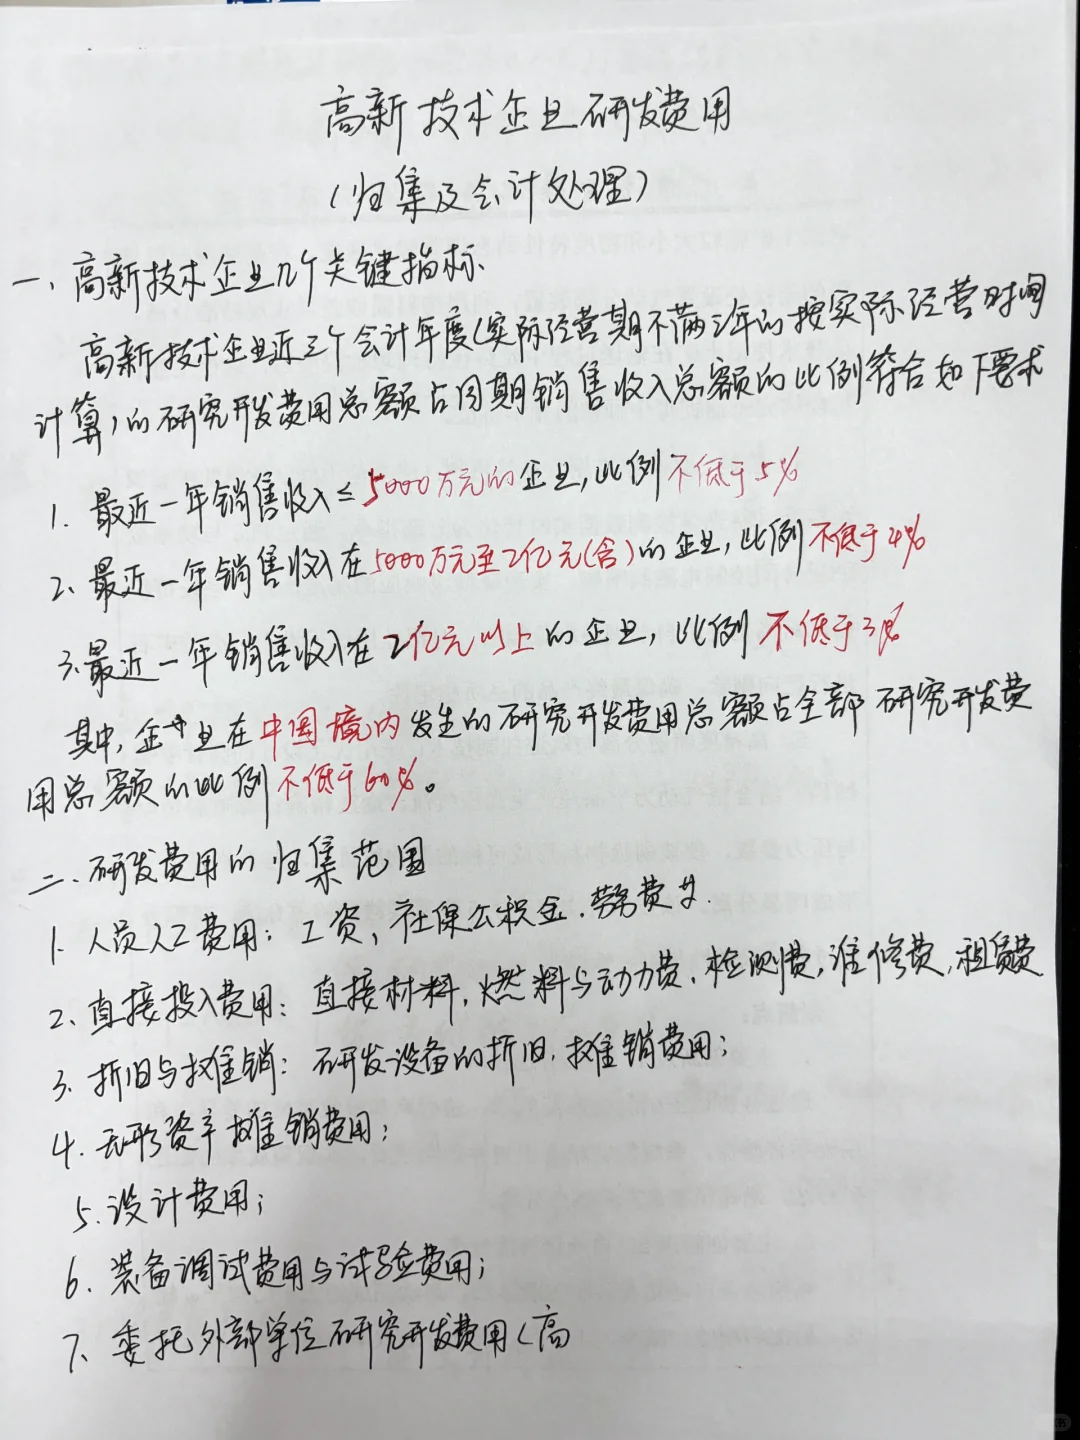 高新技术企业研发费用
(归集及会计处理)
一、高新技术企业几个关键指标
高新技术企业近三个会计年度(实际经营期不满三年的按实际经营时间
计算)的研究开发费用总额占同期销售收入总额的比例符合如下要求
1. 最近一年销售收入≤5000万元的企业,比例不低于5%
2、最近一年销售收入在5000万元至2亿元(含)的企业,比例不低于4%
3.最近一年销售收入在2亿元以上的企业,比例不低于3%
其中,企业在中国境内发生的研究开发费用总额占全部研究开发费
用总额的比例不低于60%。
二、研发费用的归集范围
1. 人员人工费用:工资,社保公积金.劳务费
2、直接投入费用:直接材料,燃料与动力费,检测费,维修费,租赁费
3. 折旧与摊销:研发设备的折旧.摊销费用;
4. 无形资产摊销费用;
5.设计费用;
6、装备调试费用与试验费用;
7、委托外部单位研究开发费用(高